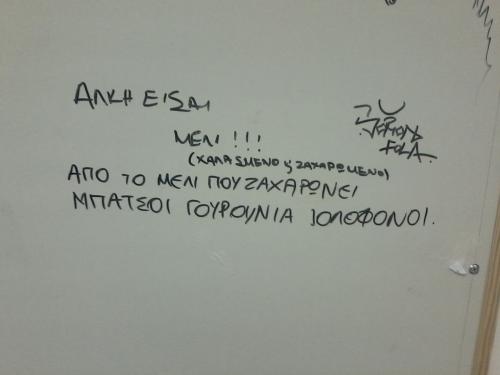 ΑΛΚΗ ΕΙΣΑΙ
ΜΕΛΙ !!!
(ΧΑΛΑΣΜΕΝΟ ή ΖΑΧΑΡΩΜΕΝΟ)
ΑΠΟ ΤΟ ΜΕΛΙ ΠΟΥ ΖΑΧΑΡΩΝΕΙ
ΜΠΑΤΣΟΙ ΓΟΥΡΟΥΝΙΑ ΔΟΛΟΦΟΝΟΙ.
FOLA